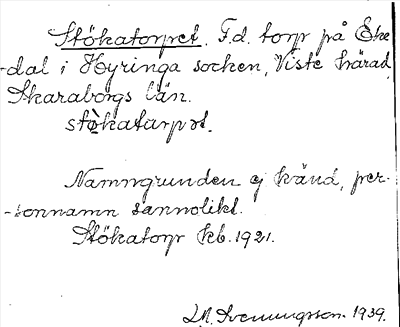 Stökatorpet. F.d. torp på Eke
-dal i Hyringa socken, Viste härad,
Skaraborgs län.
stökatarpət.
Namngrunden ej känd, per-
-sonnamn sannolikt.
Stökatorp kb. 1921.
1939.